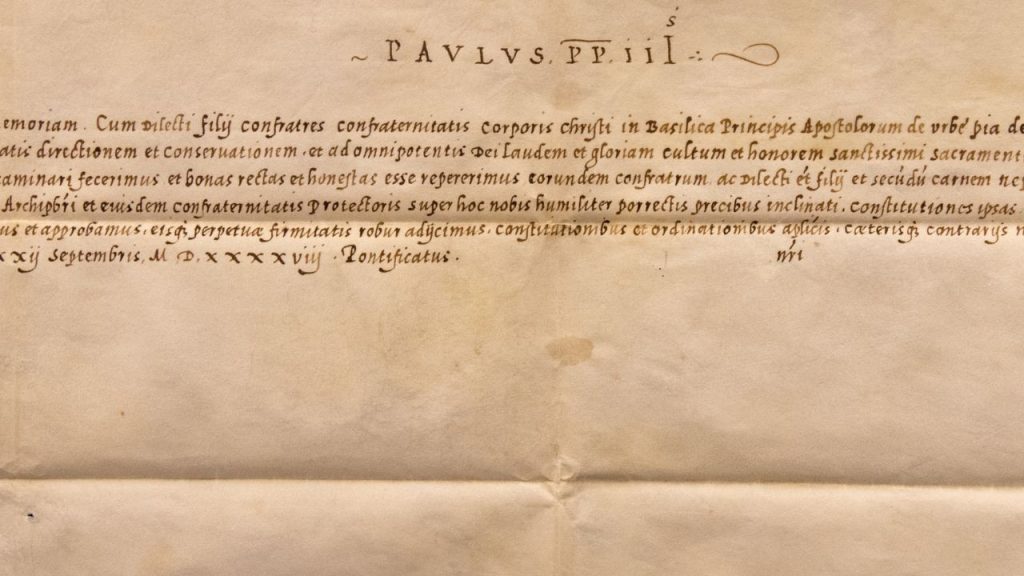 ~ PAVLVS . PP . iii s
emoriam . Cum Dilecti filij confratres confraternitatis Corporis christi in Basilica Principis Apostolorum de vrbe pia de
atis directionem et conservationem . et ad omnipotentis Dei laudem et gloriam cultum et honorem sanctissimi sacrament
aminari fecerimus et bonas rectas et honestas esse repererimus eorundem confratrum ac Dilecti et filij et secúdú carnem
Archipbri et eiusdem confraternitatis Protectoris super hoc nobis humiliter porrectis precibus inclinati . Constitutiones ipsas
us et approbamus . eisq perpetuæ firmitatis robur adijcimus . Constitutionibus et ordinationibus aplicis . cæterisq contrarijs n
xxij Septembris . M D . xxxxviii . Pontificatus . nri